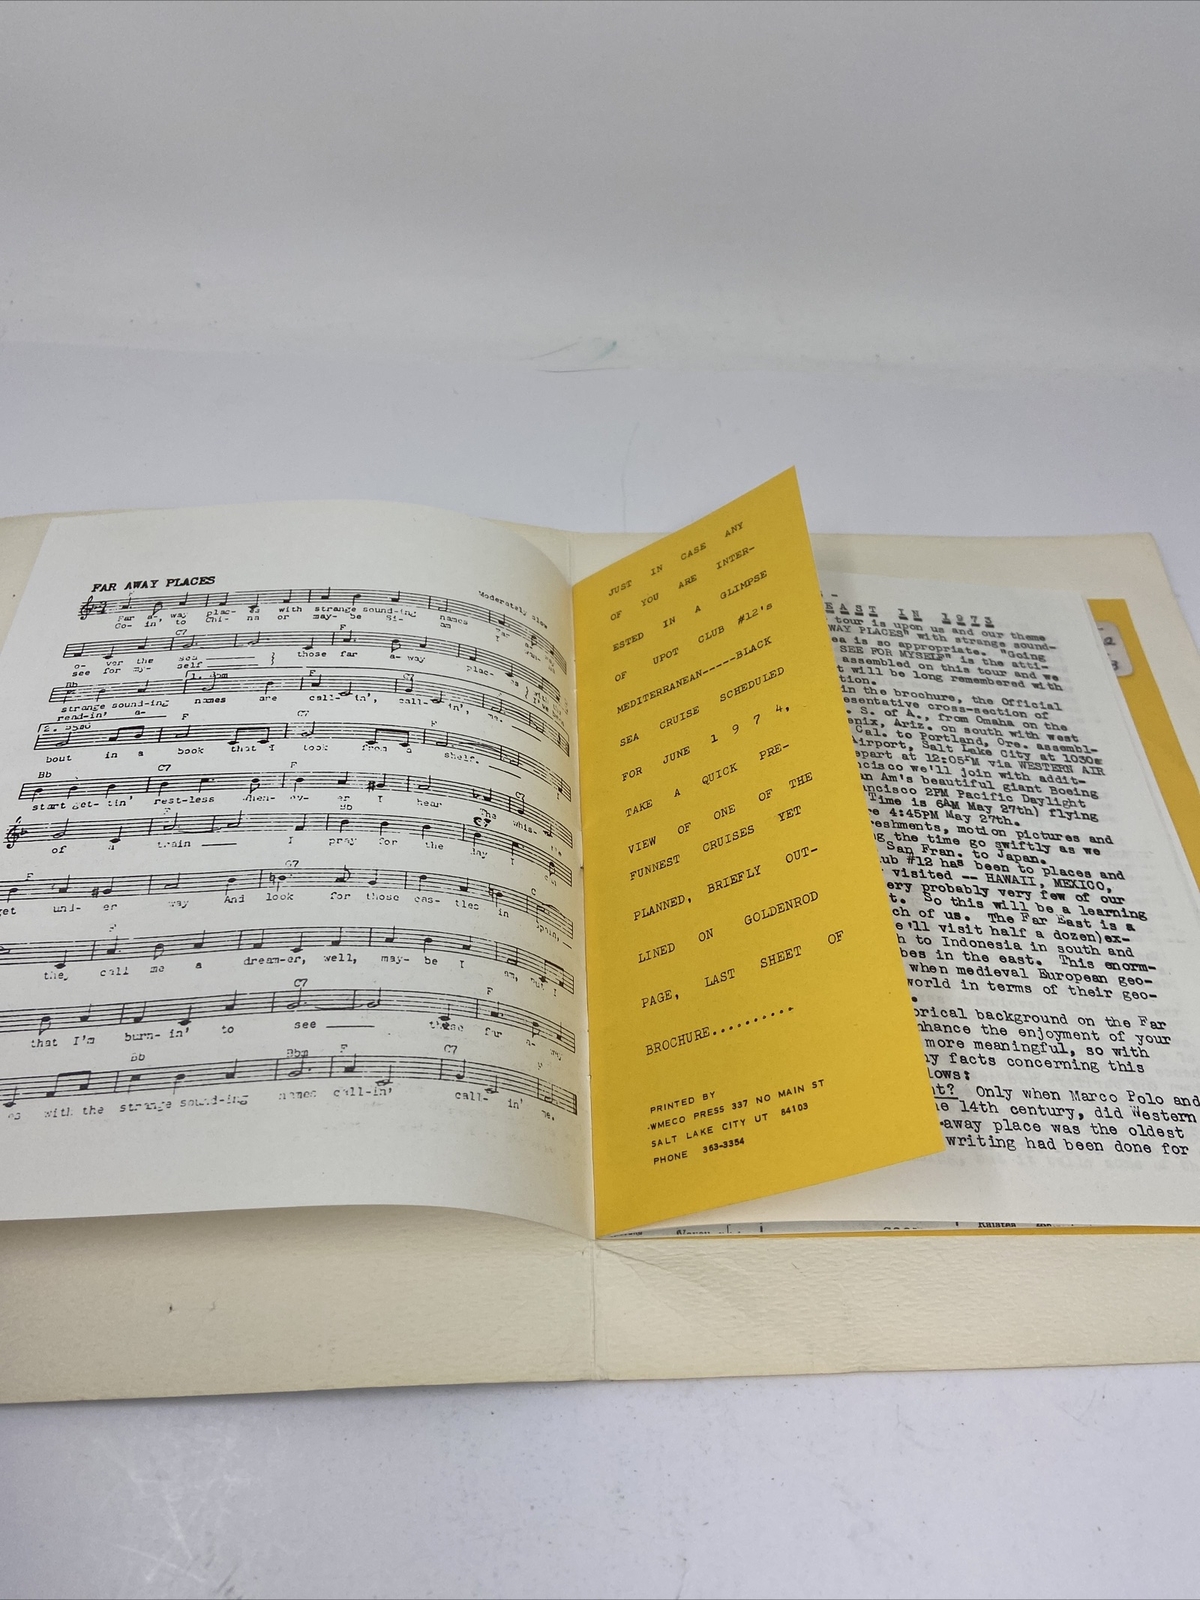 FAR AWAY PLACES
Moderately slow
F
Far a- way plac- es with strange sound-ing names
Co- in' to Chi- na or may- be Si- am
C7 F
o- ver the sea those far a- way plac-
see for my- self
Bb 1. Bbm F C7
strange sound-ing names are call- in', call- in', me.
read-in' a-
F C7 F
bout in a book that I took from a shelf.
Bb C7 F
start get- tin' rest-less when- ev- er I hear The whis-
Bb C7
of a train I pray for the day I
F G7 C
get und- er way And look for those cas- tles in Spain,
F
they call me a dream-er, well, may- be I am, but I
C7 F
that I'm burn-in' to see those far a- way
Bb Bbm F C7
es with the strange sound-ing names call-in' call- in' me.
JUST IN CASE ANY
OF YOU ARE INTER-
ESTED IN A GLIMPSE
OF UPOT CLUB #12's
MEDITERRANEAN-----BLACK
SEA CRUISE SCHEDULED
FOR JUNE 1 9 7 4,
TAKE A QUICK PRE-
VIEW OF ONE OF THE
FUNNEST CRUISES YET
PLANNED, BRIEFLY OUT-
LINED ON GOLDENROD
PAGE, LAST SHEET OF
BROCHURE..........
PRINTED BY
WMECO PRESS 337 NO MAIN ST
SALT LAKE CITY UT 84103
PHONE 363-3354
EAST IN 1973
tour is upon us and our theme
WAY PLACES" with strange sound-
ea is so appropriate. "Going
SEE FOR MYSELF" is the atti-
assembled on this tour and we
t will be long remembered with
tion.
in the brochure, the Official
esentative cross-section of
. S. of A., from Omaha on the
enix, Ariz. on south with west
Cal. to Portland, Ore. assembl-
Airport, Salt Lake City at 1030a
epart at 12:05PM via WESTERN AIR
ncisco we'll join with addit-
an Am's beautiful giant Boeing
ancisco 2PM Pacific Daylight
Time is 6AM May 27th) flying
re 4:45PM May 27th.
reshments, motion pictures and
ng the time go swiftly as we
San Fran. to Japan.
lub #12 has been to places and
visited -- HAWAII, MEXICO,
ery probably very few of our
t. So this will be a learning
ch of us. The Far East is a
e'll visit half a dozen)ex-
h to Indonesia in south and
bes in the east. This enorm-
when medieval European geo-
world in terms of their geo-
.
orical background on the Far
nhance the enjoyment of your
more meaningful, so with
ny facts concerning this
lows:
nt? Only when Marco Polo and
he 14th century, did Western
away place was the oldest
writing had been done for